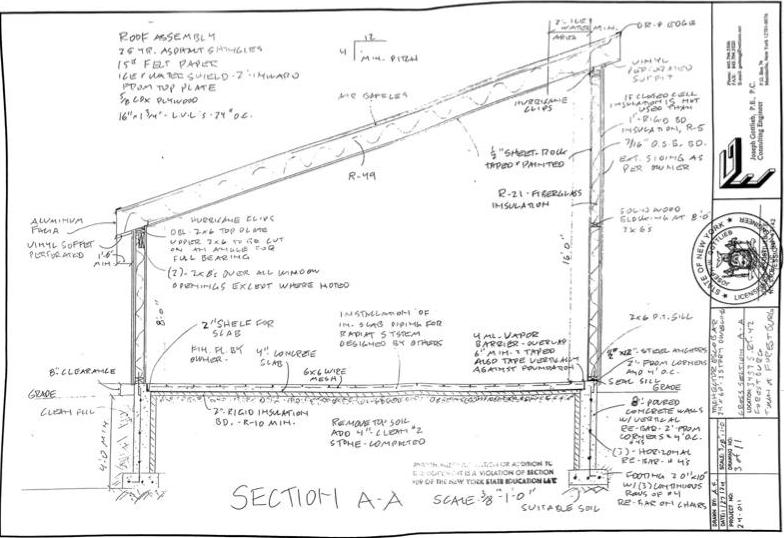 ROOF ASSEMBLY
25 YR. ASPHALT SHINGLES
15# FELT PAPER
ICE/WATER SHIELD - 2' INWARD
FROM TOP PLATE
5/8 CDX PLYWOOD
16" x 1 3/4" - L.V.L'S - 24" O.C.
12
4
MIN. PITCH
2' ICE
WATER MIN.
AREA
DRIP EDGE
VINYL
PERFORATED
SOFFIT
AIR BAFFLES
HURRICANE
CLIPS
IF CLOSED CELL
INSULATION IS NOT
USED THAN
1" - RIGID BD
INSULATION, R-5
7/16" O.S.B. BD.
EXT. SIDING AS
PER OWNER
1/2" SHEET-ROCK
TAPED & PAINTED
R-49
R-21 - FIBERGLASS
INSULATION
SOLID WOOD
BLOCKING AT 8'-0"
2x6'S
ALUMINUM
FACIA
VINYL SOFFET
PERFORATED
1'-0"
MIN.
HURRICANE CLIPS
DBL. 2x6 TOP PLATE
UPPER 2x6 TO BE CUT
ON AN ANGLE FOR
FULL BEARING
(2) - 2x8'S OVER ALL WINDOW
OPENINGS EXCEPT WHERE NOTED
16'-0"
8'-0"
2" SHELF FOR
SLAB
FIN. FL. BY
OWNER
4" CONCRETE
SLAB
6x6 WIRE
MESH
INSTALLATION OF
IN-SLAB PIPING FOR
RADIAT SYSTEM
DESIGNED BY OTHERS
4 ML. VAPOR
BARRIER - OVERLAP
6" MIN. & TAPED
ALSO TAPE VERTICALLY
AGAINST FOUNDATION
2x6 P.T. SILL
STEEL ANCHORS
2" FROM CORNERS
AND 4' O.C.
SEAL SILL
GRADE
8" CLEARANCE
GRADE
CLEAN FILL
4'-0" MIN
2" RIGID INSULATION
BD. - R-10 MIN.
REMOVE TOP SOIL
ADD 4" CLEAN #2
STONE - COMPACTED
8" POURED
CONCRETE WALLS
W/ VERTICAL
RE-BAR - 2' FROM
CORNERS & 4' O.C.
#4'S
(3) - HORIZONTAL
RE-BAR - #4'S
FOOTING 20" x 10"
W/ (3) CONTINUOUS
ROWS OF #4
RE-BAR ON CHAIRS
SUITABLE SOIL
IS A VIOLATION OF SECTION
OF THE NEW YORK STATE EDUCATION LAW
SECTION A-A
SCALE: 3/8" = 1'-0"
Joseph Gottlieb, P.E., P.C.
Consulting Engineer
P.O. Box 76
STATE OF NEW YORK
CROSS SECTION A-A
LOCATION:
FORESTBURG
TOWN OF FORESTBURG
DRAWN BY: A.F.
SCALE: 3/8" = 1'-0"
DRAWING NO.
3 OF 11
PROJECT NO.
24-011